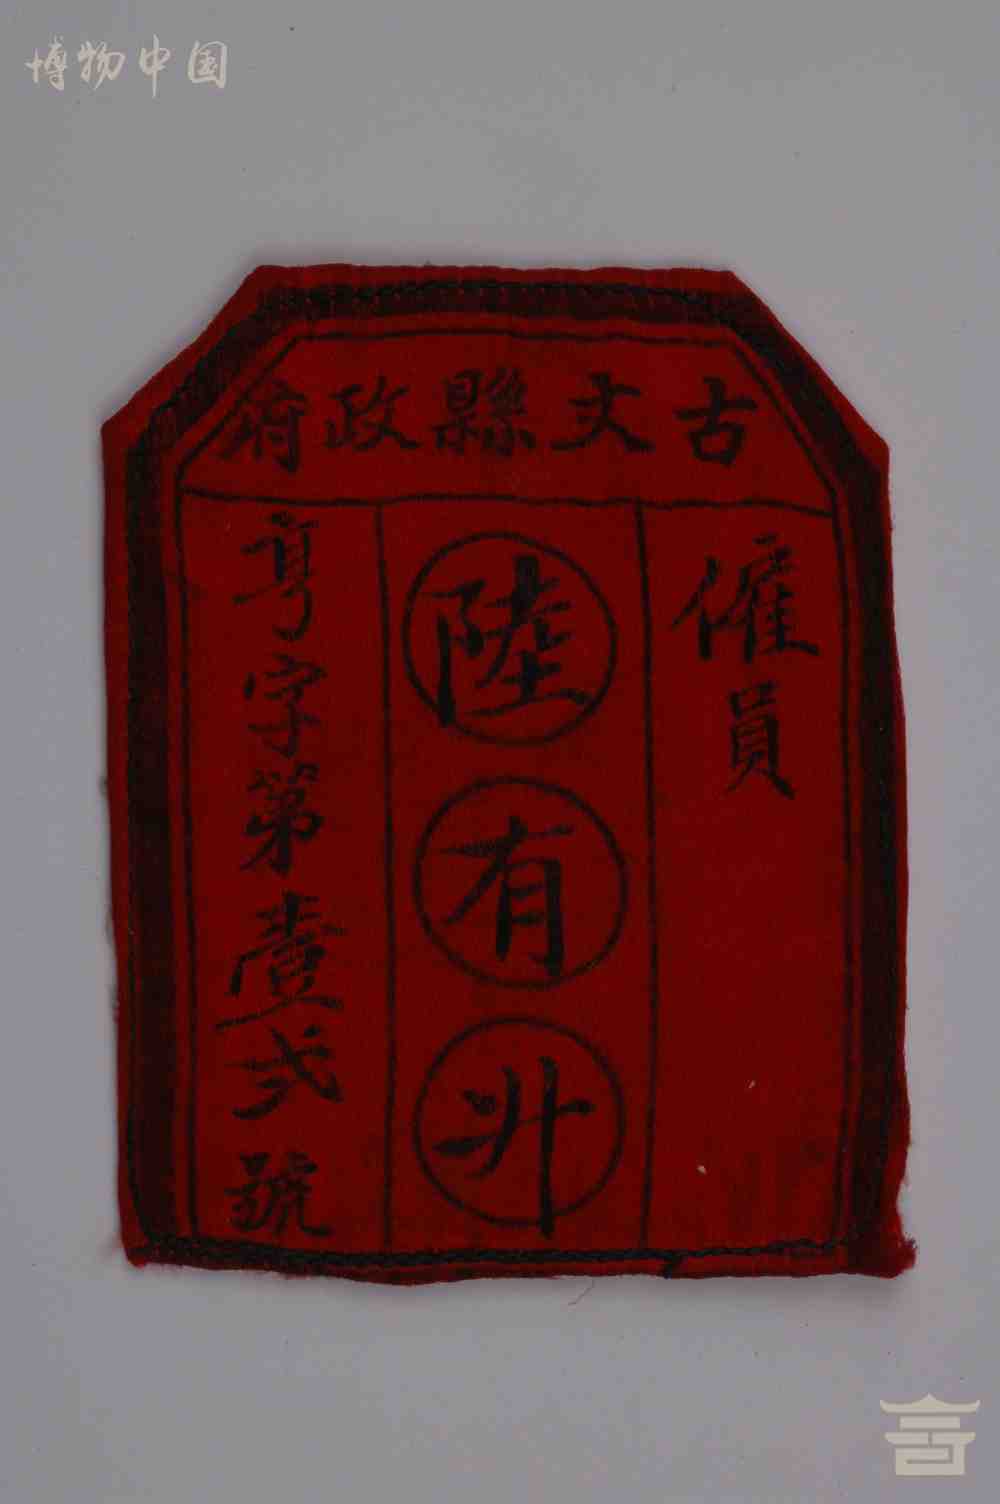 博物中国
古丈縣政府
僱員
陸有升
亨字第壹弍號